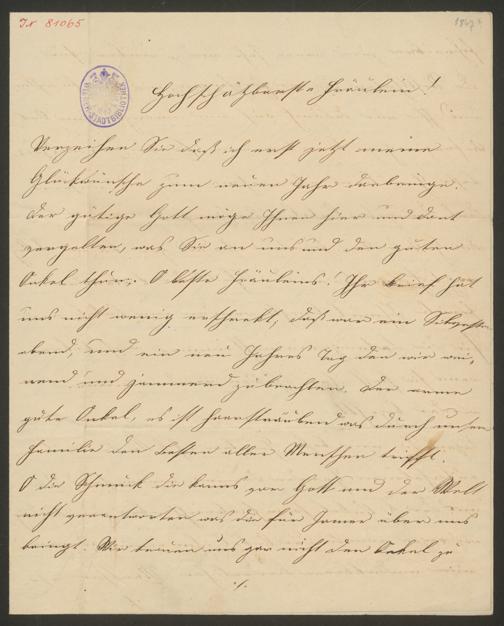 I.N 81065
Hochschätzbarste Fräulein!
Verzeihen Sie daß ich erst jetzt meine
Glückwünsche zum neuen Jahr darbringe.
Der gütige Gott möge Ihnen hier und dort
vergelten, was Sie an uns und den guten
Onkel thun. O beste Fräuleins! Ihr Brief hat
uns nicht wenig erschrekt, daß war ein Silvester
abend, und ein neu Jahres Tag den wir wei-
nend und jammernd zubrachten. Der arme
gute Onkel, es ist haarsträubend was durch unsere
Familie den besten aller Menschen trifft.
O die Schmuck die kanns vor Gott und der Welt
nicht verantworten was die für Jamer über uns
bringt. Wir trauen uns gar nicht den Onkel zu
./.